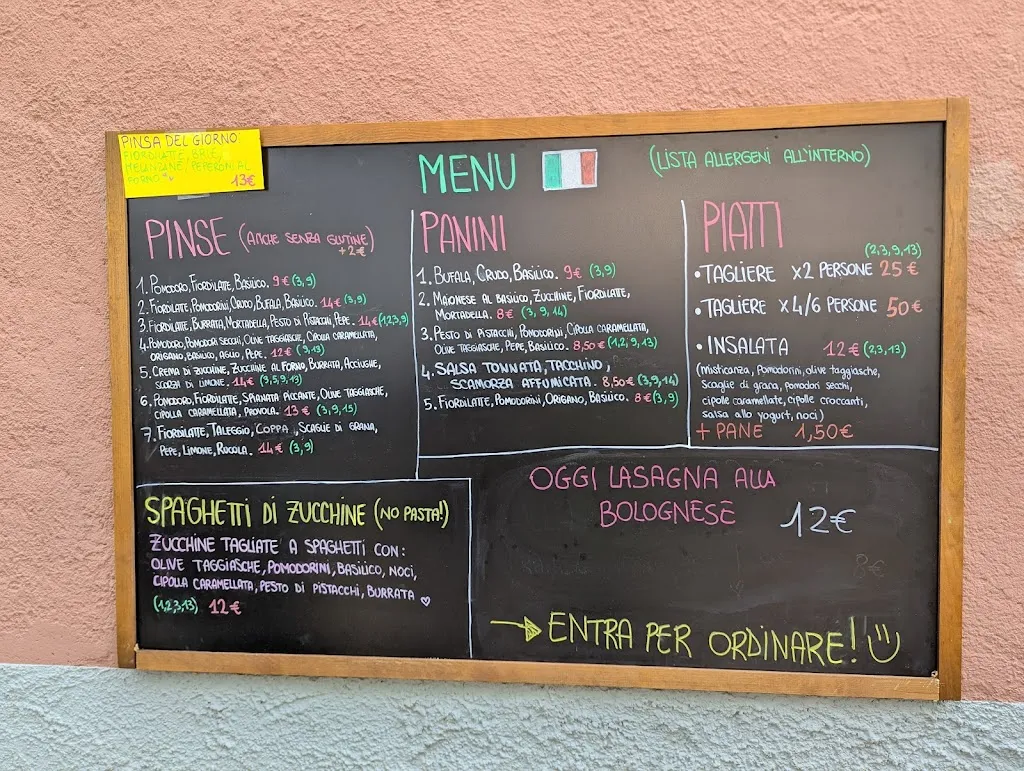 PINSA DEL GIORNO
FIORDILATTE, BRIE,
MELANZANE/PEPERONI AL
FORNO
13€
MENU
(LISTA ALLERGENI ALL'INTERNO)
PINSE (ANCHE SENZA GLUTINE)
+2€
1. POMODORO, FIORDILATTE, BASILICO. 9€ (3,9)
2. FIORDILATTE, POMODORINI, CRUDO, BUFALA, BASILICO. 14€ (3,9)
3. FIORDILATTE, BURRATA, MORTADELLA, PESTO DI PISTACCHI, PEPE. 14€ (1,2,3,9)
4. POMODORO, POMODORI SECCHI, OLIVE TAGGIASCHE, CIPOLLA CARAMELLATA,
ORIGANO, BASILICO, AGLIO, PEPE. 12€ (9,13)
5. CREMA DI ZUCCHINE, ZUCCHINE AL FORNO, BURRATA, ACCIUGHE,
SCORZA DI LIMONE. 14€ (3,5,9,13)
6. POMODORO, FIORDILATTE, SPIANATA PICCANTE, OLIVE TAGGIASCHE,
CIPOLLA CARAMELLATA, PROVOLA. 13€ (3,9,13)
7. FIORDILATTE, TALEGGIO, COPPA, SCAGLIE DI GRANA,
PEPE, LIMONE, RUCOLA. 14€ (3,9)
PANINI
1. BUFALA, CRUDO, BASILICO. 9€ (3,9)
2. MAIONESE AL BASILICO, ZUCCHINE, FIORDILATTE,
MORTADELLA. 8€ (3,9,14)
3. PESTO DI PISTACCHI, POMODORINI, CIPOLLA CARAMELLATA,
OLIVE TAGGIASCHE, PEPE, BASILICO. 8,50€ (1,2,9,13)
4. SALSA TONNATA, TACCHINO,
SCAMORZA AFFUMICATA. 8,50€ (3,9,14)
5. FIORDILATTE, POMODORINI, ORIGANO, BASILICO. 8€ (3,9)
PIATTI
(2,3,9,13)
• TAGLIERE X2 PERSONE 25€
• TAGLIERE X4/6 PERSONE 50€
• INSALATA 12€ (2,3,13)
(Misticanza, Pomodorini, olive taggiasche,
Scaglie di grana, pomodori secchi,
cipolle caramellate, cipolle croccanti,
salsa allo yogurt, noci)
+ PANE 1,50€
SPAGHETTI DI ZUCCHINE (NO PASTA!)
ZUCCHINE TAGLIATE A SPAGHETTI CON:
OLIVE TAGGIASCHE, POMODORINI, BASILICO, NOCI,
CIPOLLA CARAMELLATA, PESTO DI PISTACCHI, BURRATA ♡
(1,2,3,13) 12€
OGGI LASAGNA ALLA
BOLOGNESE 12€
8€
→ ENTRA PER ORDINARE!